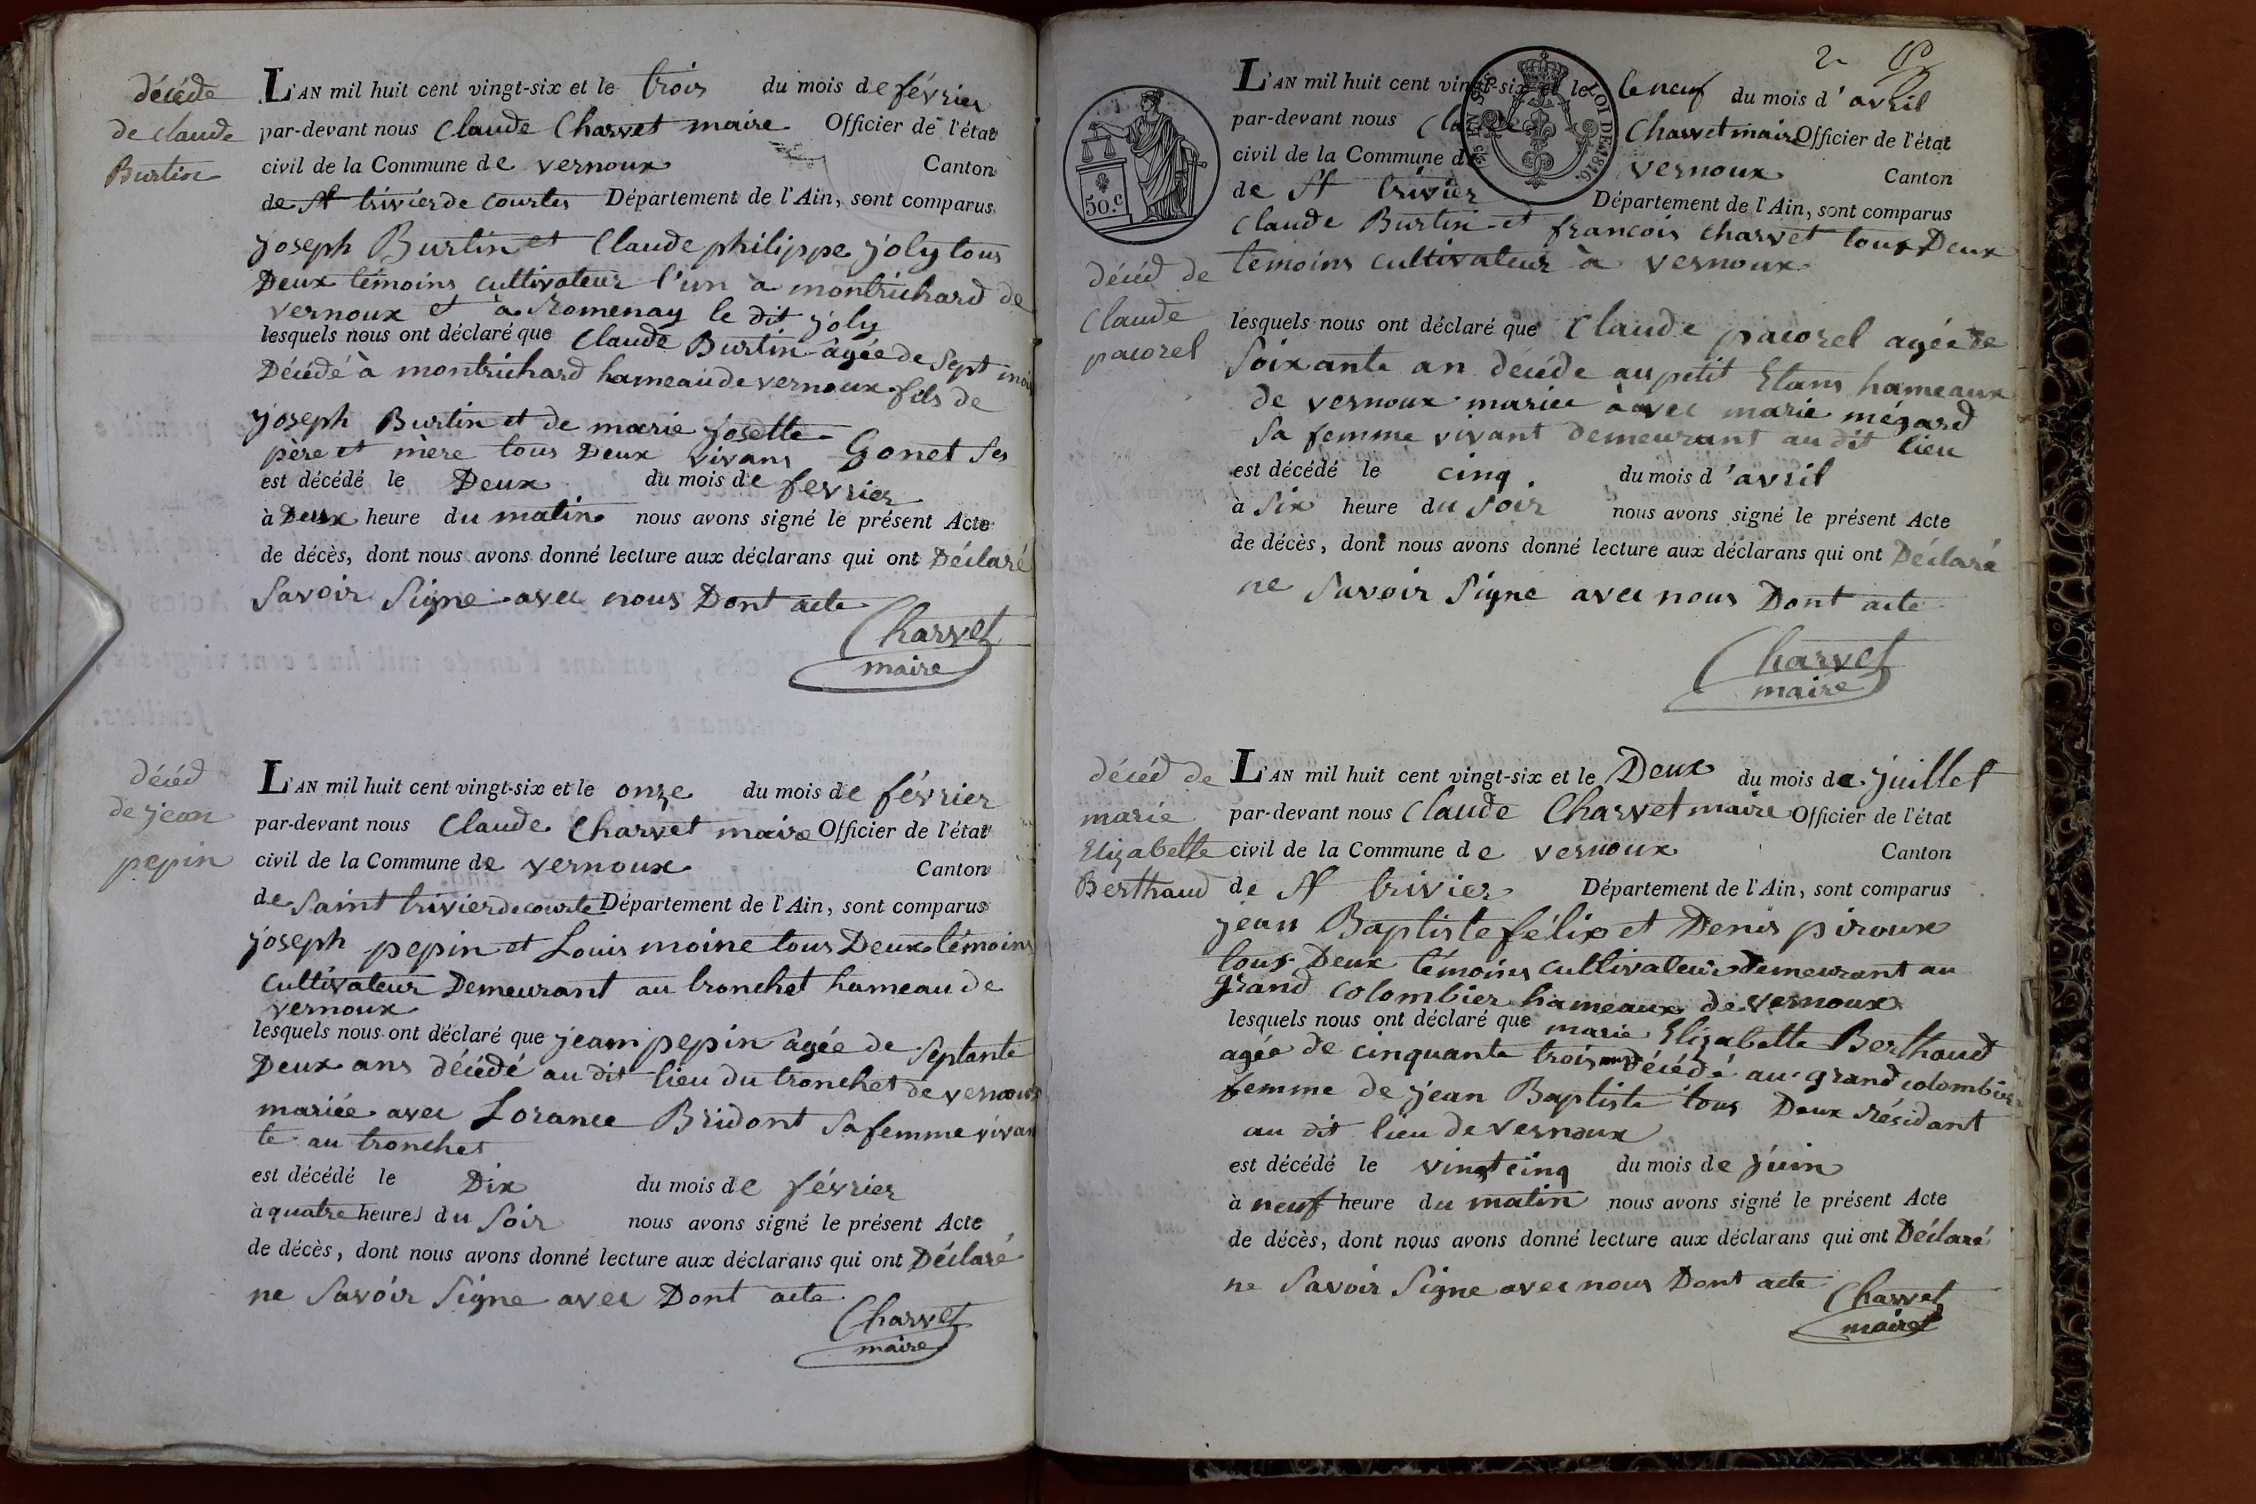 décéde
de claude
Burtin
L'AN mil huit cent vingt-six et le trois du mois de février
par-devant nous Claude Charvet maire Officier de l'état
civil de la Commune de vernoux Canton
de St trivier de Courtes Département de l'Ain, sont comparus
joseph Burtin et Claude philippe joly tous
Deux témoins cultivateur l'un à montrichard de
vernoux et à Romenay le dit joly
lesquels nous ont déclaré que Claude Burtin âgée de Sept mois
Décédé à montrichard hameau de vernoux fils de
joseph Burtin et de marie josette Gonet Ses
père et mère tous Deux vivans
est décédé le Deux du mois de fevrier
à Deux heure du matin nous avons signé le présent Acte
de décès, dont nous avons donné lecture aux déclarans qui ont Déclaré
Savoir Signe avec nous Dont acte
Charvet
maire
décéd
de jean
pepin
L'AN mil huit cent vingt-six et le onze du mois de février
par-devant nous Claude Charvet maire Officier de l'état
civil de la Commune de vernoux Canton
de Saint trivier de courte Département de l'Ain, sont comparus
joseph pepin et Louis moine tous Deux témoins
Cultivateur Demeurant au tronchet hameau de
vernoux
lesquels nous ont déclaré que jean pepin âgée de Septante
Deux ans décédé au dit lieu du tronchet de vernoux
mariée avec Lorance Bridont Sa femme vivan
te au tronchet
est décédé le Dix du mois de février
à quatre heures du Soir nous avons signé le présent Acte
de décès, dont nous avons donné lecture aux déclarans qui ont Déclaré
ne Savoir Signe avec Dont acte
Charvet
maire
2
50.c
LOI DE 1816.
L'AN mil huit cent vingt-six et le le neuf du mois d'avril
par-devant nous Claude Charvet maire Officier de l'état
civil de la Commune de vernoux Canton
de St trivier Département de l'Ain, sont comparus
Claude Burtin et francois charvet tous Deux
temoins cultivateur à vernoux
décéd de
Claude
pacorel
lesquels nous ont déclaré que Claude pacorel agée de
Soixante an décéde au petit Etans hameaux
de vernoux mariee à avec marie mégard
Sa femme vivant demeurant au dit lieu
est décédé le cinq du mois d'avril
à Six heure du Soir nous avons signé le présent Acte
de décès, dont nous avons donné lecture aux déclarans qui ont Déclaré
ne Savoir Signe avec nous Dont acte
Charvet
maire
décéd de
marie
Elizabette
Berthaud
L'AN mil huit cent vingt-six et le Deux du mois de juillet
par-devant nous Claude Charvet maire Officier de l'état
civil de la Commune de vernoux Canton
de St trivier Département de l'Ain, sont comparus
jean Baptiste félix et Denis piroux
tous Deux témoins cultivateur Demeurant au
grand colombier hameaux de vernoux
lesquels nous ont déclaré que marie Elizabette Berthoud
agée de cinquante trois ans décédé au grand colombier
femme de jean Baptiste tous Deux résidant
au dit lieu de vernoux
est décédé le vingt cinq du mois de juin
à neuf heure du matin nous avons signé le présent Acte
de décès, dont nous avons donné lecture aux déclarans qui ont Déclaré
ne Savoir Signe avec nous Dont acte
Charvet
maire